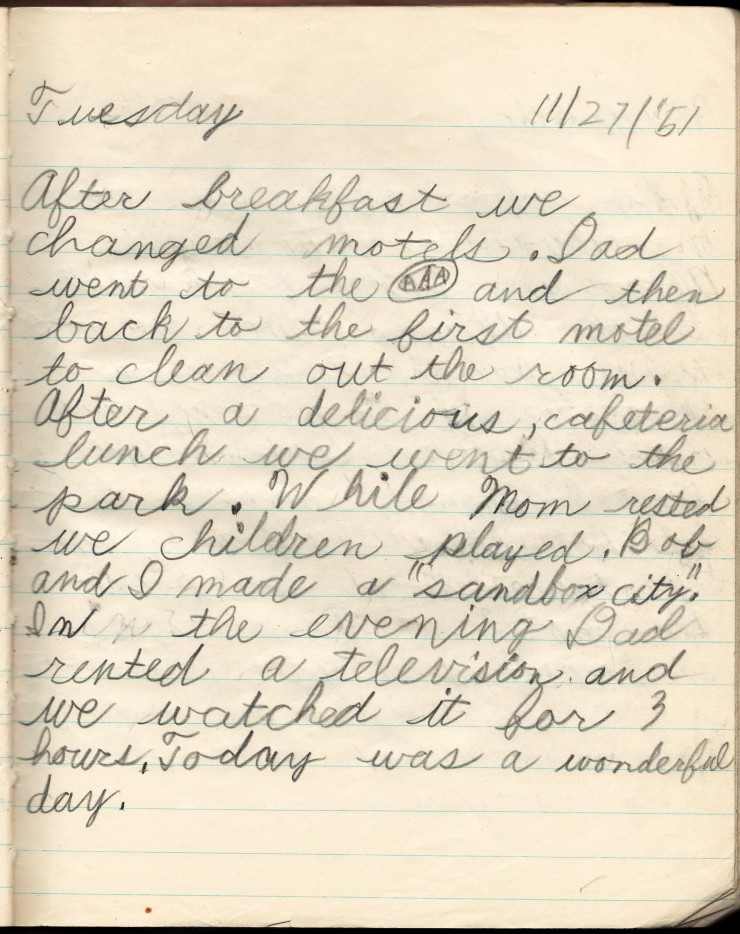 Tuesday 11/27/'51
After breakfast we
changed motels. Dad
went to the AAA and then
back to the first motel
to clean out the room.
After a delicious, cafeteria
lunch we went to the
park. While Mom rested
we children played. Bob
and I made a "sandbox city".
In the evening Dad
rented a television and
we watched it for 3
hours. Today was a wonderful
day.